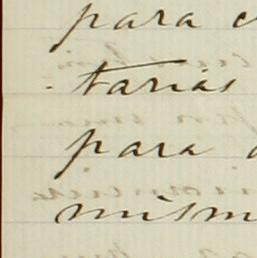 para
tarias
para
mism